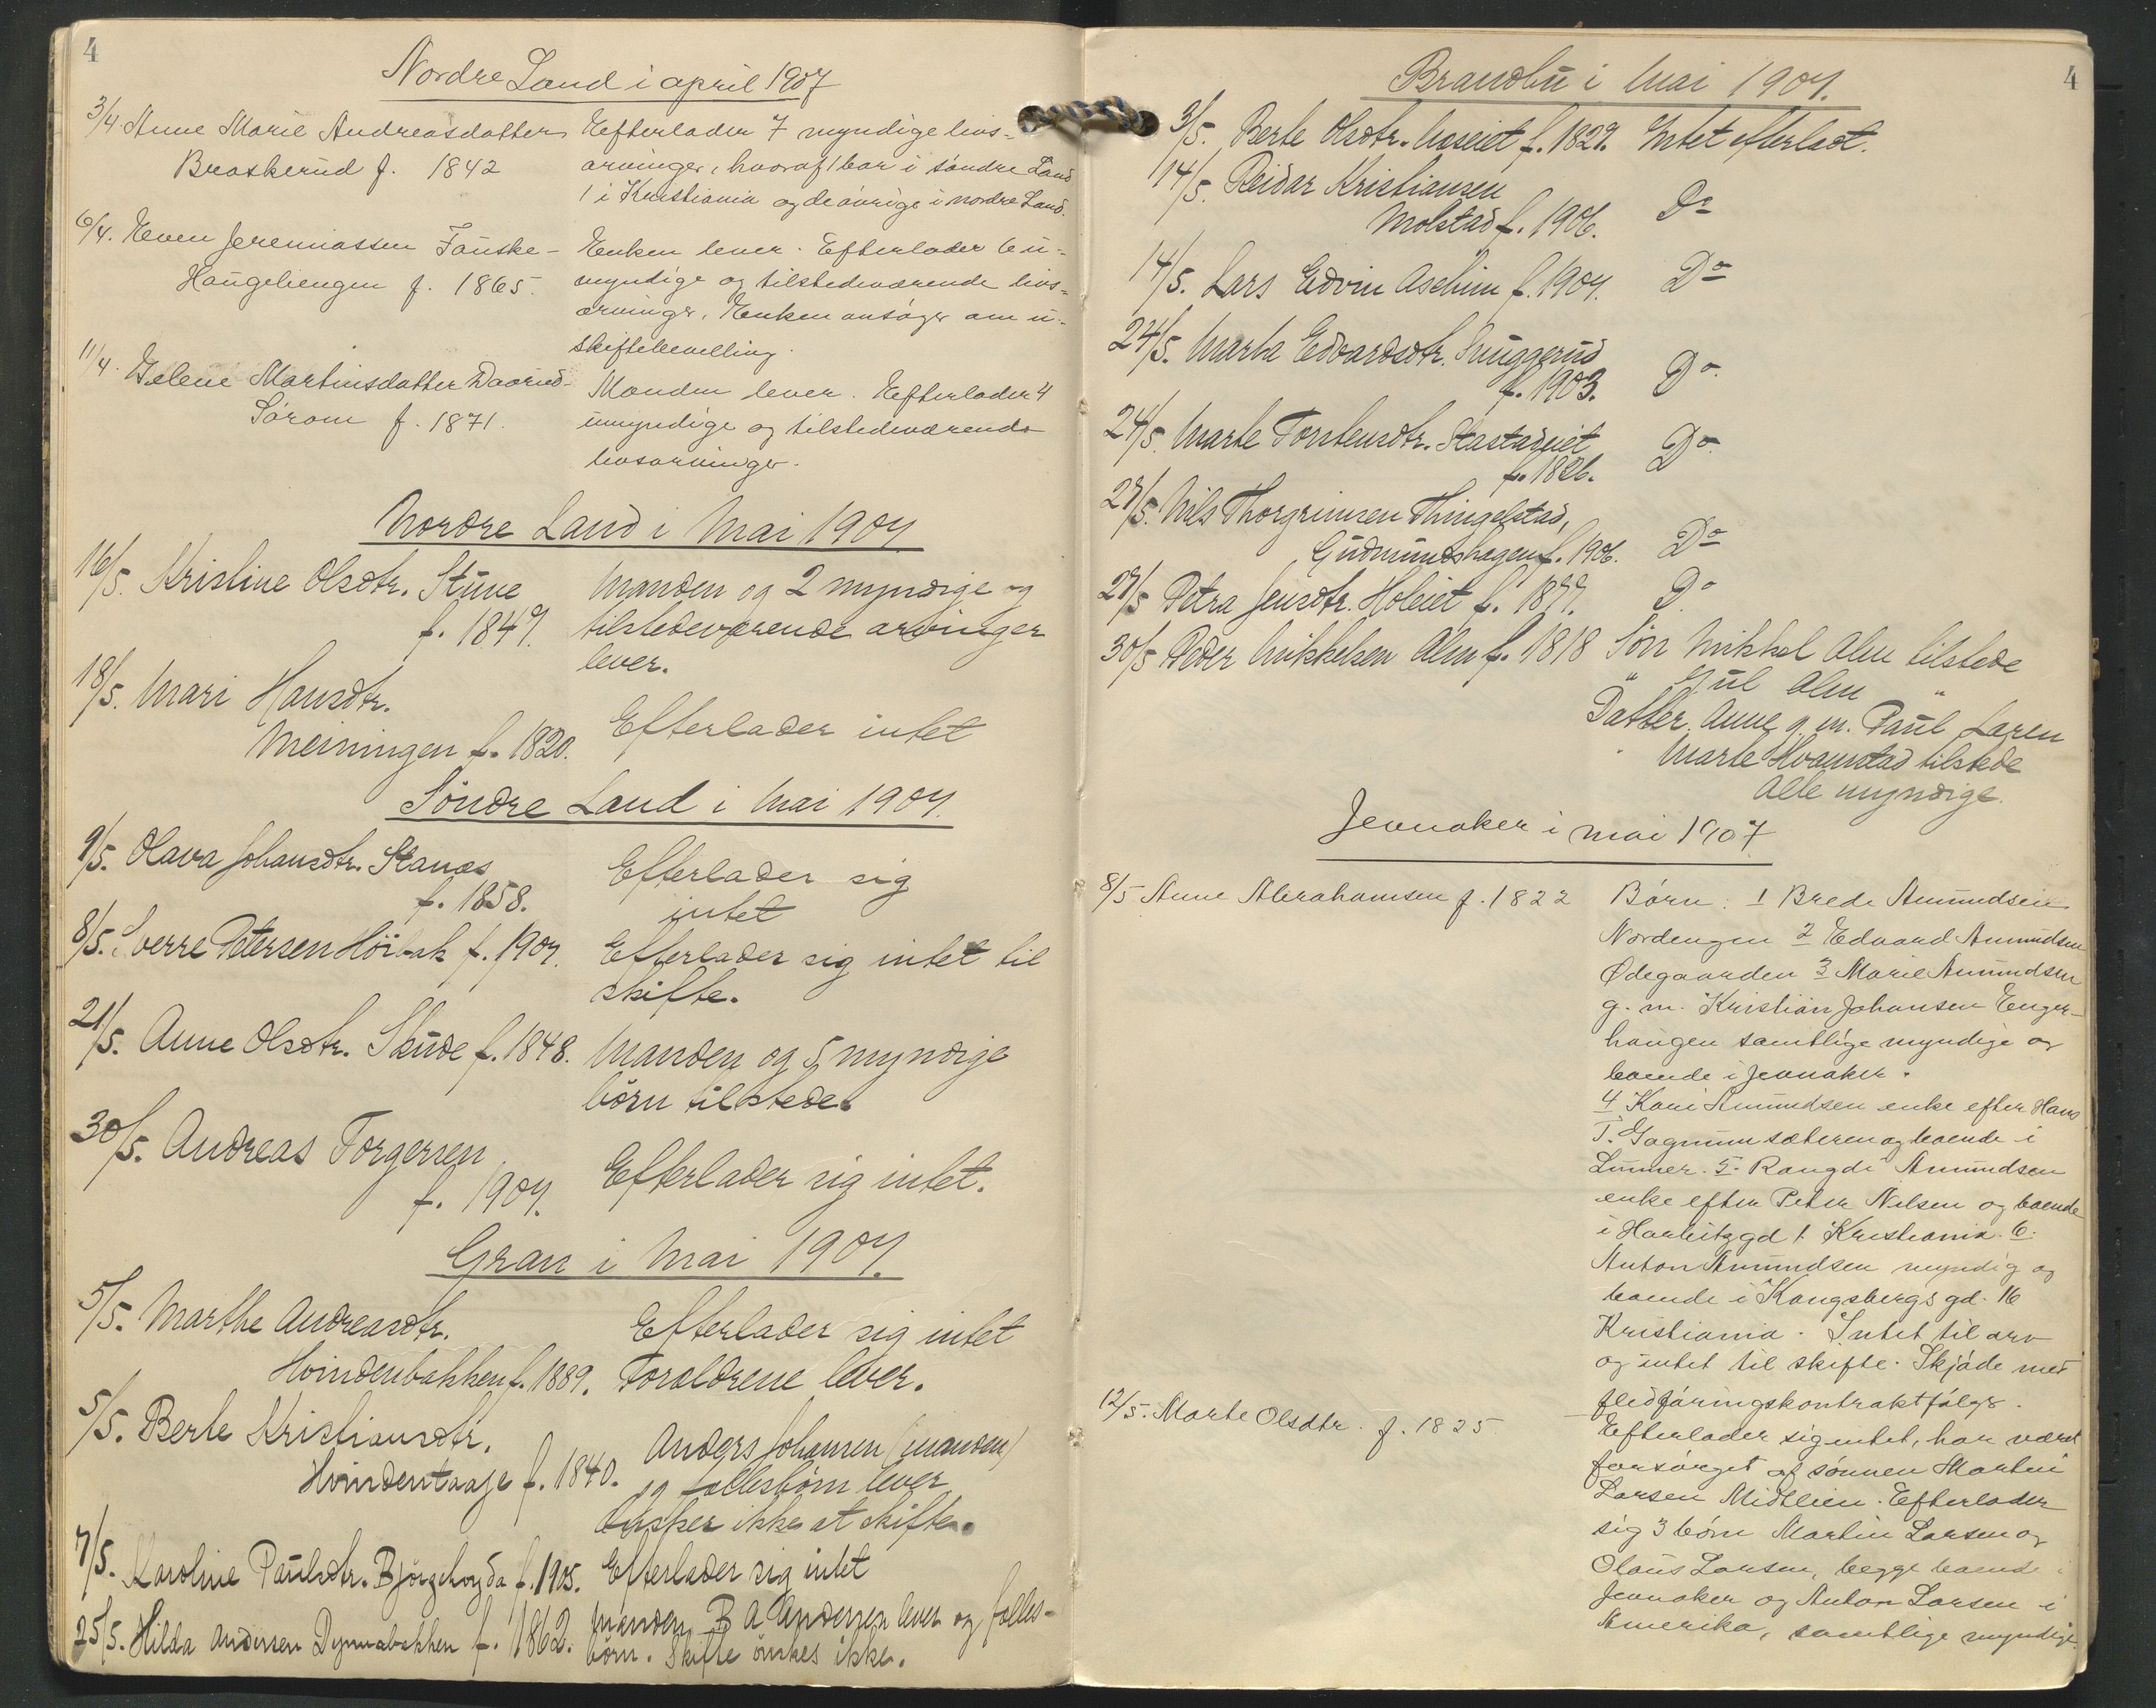 4
Nordre Land i april 1907
3/4 Anne Marie Andreasdatter
Braskerud f. 1842
Efterlader 7 myndige livs-
arvinger, hvoraf 1 bor i söndre Land
1 i Kristiania og de övrige i nordre Land.
6/4. Even Jeremiassen Fauske-
Haugeliengen f. 1865.
Enken lever. Efterlader 6 u-
myndige og tilstedeværende livs-
arvinger. Enken ansöger om u-
skiftebevilling.
11/4. Helene Martinsdatter Daarud-
Sörom f. 1871.
Manden lever. Efterlader 4
umyndige og tilstedeværende
livsarvinger.
Nordre Land i Mai 1907
16/5. Kristine Olsdtr. Stuve
f. 1847.
Manden og 2 myndige og
tilstedeværende arvinger
lever.
18/5. Mari Hansdtr.
Meiningen f. 1820.
Efterlader intet
Söndre Land i Mai 1907.
9/5. Olava Johansdtr. Stanæs
f. 1858.
Efterlader sig
intet
8/5. Sverre Petersen Höibak f. 1907.
Efterlader sig intet til
skifte.
21/5. Anne Olsdtr. Skude f. 1848.
Manden og 5 myndige
börn tilstede.
30/5. Andreas Torgersen
f. 1907.
Efterlader sig intet.
Gran i Mai 1907.
5/5. Marthe Andreasdtr.
Hvindenbakken f. 1889.
Efterlader sig intet
Forældrene lever.
5/5. Berte Kristiansdtr.
f. 1840.
Anders Johansen (manden)
og fællesbörn lever
önsker ikke at skifte.
7/5. Karoline Paulsdtr. f. 1905.
Efterlader sig intet
25/5. Hilda Andersen Dynnabakken f. 1862.
Manden B A Andersen lever og fælles-
börn. Skifte önskes ikke.
4
Brandbu i Mai 1907.
3/5. Berte Olsdtr. f. 1829. Intet efterladt.
14/5. Reidar Kristiansen
Molstad f. 1906. Do
14/5. Lars Edvin Aschim f. 1907. Do
24/5. Marta Edvardsdtr. Snuggerud
f. 1903. Do.
24/5. Marte Torstensdtr. Stastadeiet
f. 1826. Do.
27/5. Nils Thorgrimsen Thingelstad,
Gudmundshagen f. 1906. Do
27/5 Petra Jensdtr. Holeiet f. 1877. Do
30/5 Peder Mikkelsen Alm f. 1818 Sön Mikkel Alm tilstede
" Gul Alm "
Datter Anne g. m. Paul
Marte Hvamstad tilstede
Alle myndige.
Jevnaker i mai 1907
8/5 Anne Abrahamsen f. 1822
Börn: 1 Brede Amundsen
Nordengen 2 Edvard Amundsen
Ødegaarden 3 Marie Amundsen
g. m. Kristian Johansen Enger-
haugen samtlige myndige og
boende i Jevnaker.
4 Kari Amundsen enke efter Hans
T. Gagnum sæteren og boende i
Lunner. 5. Rangdi Amundsen
enke efter Peter Nilsen og boende
i Harbitzgd 1. Kristiania. 6.
Anton Amundsen myndig og
boende i Kongsbergs gd. 16
Kristiania. Intet til arv
og intet til skifte. Skjöde med
fledföringskontrakt fölger.
12/5. Marte Olsdtr. f. 1825
Efterlader sig intet, har været
forsörget af sönnen Martin
Larsen Midtlien. Efterlader
sig 3 börn Martin Larsen og
Olaus Larsen, begge boende i
Jevnaker og Anton Larsen i
Amerika, samtlige myndige.